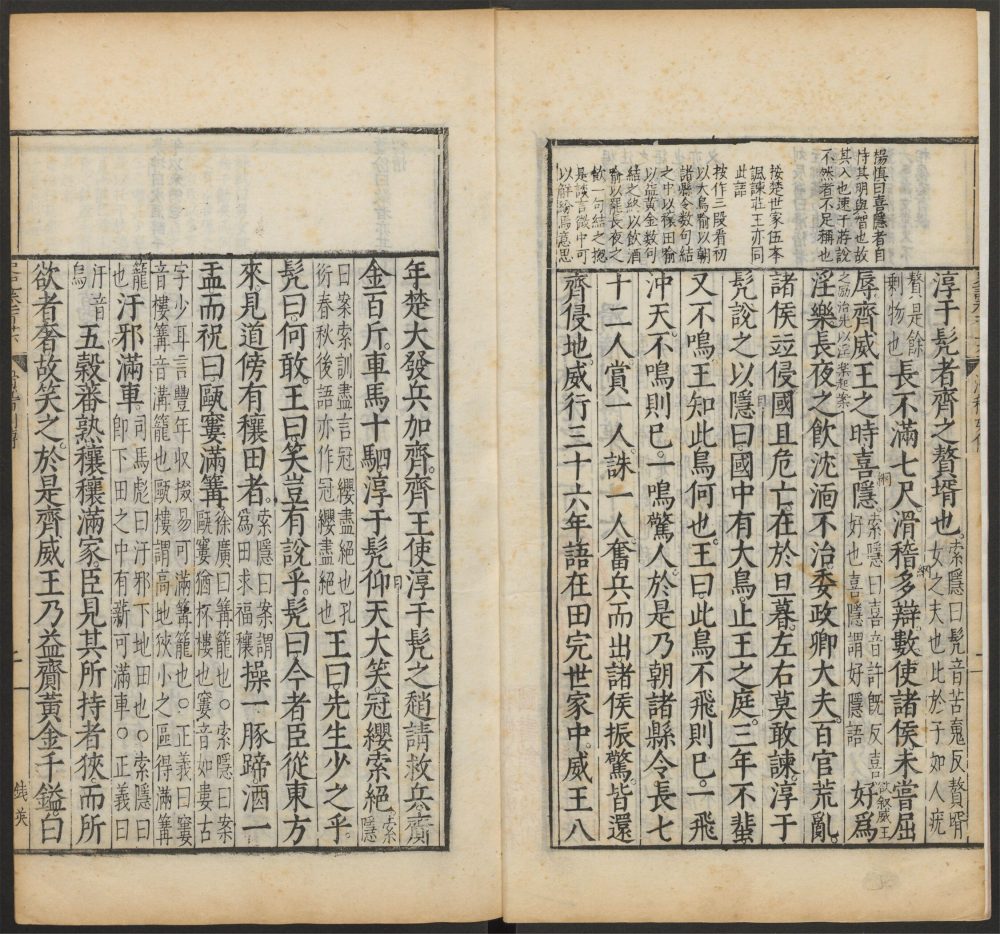 楊慎曰喜隱者自
恃其明與智也故
其入也速干游說
不然者不足稱也
按楚世家伍本
諷諫莊王亦同
此語
按作三段看初
以大鳥喻以朝
諸縣令數句結
之中以穰田喻
以益黃金數句
結之終以飲酒
喻以罷長夜之
飲一句結之揔
是談言微中可
以觧紛爲意思
淳于髡者齊之贅壻也索隱曰髡音苦䰟反贅壻女之夫也比於子如人疣
贅是餘剩物也長不滿七尺滑稽多辯數使諸侯未嘗屈
辱齊威王之時喜隱索隱曰喜音許旣反喜好也喜隱謂好隱語好爲
淫樂長夜之飲沈湎不治委政卿大夫百官荒亂
諸侯竝侵國且危亡在於旦暮左右莫敢諫淳于
髡說之以隱曰國中有大鳥止王之庭三年不蜚
又不鳴王知此鳥何也王曰此鳥不飛則已一飛
沖天不鳴則已一鳴驚人於是乃朝諸縣令長七
十二人賞一人誅一人奮兵而出諸侯振驚皆還
齊侵地威行三十六年語在田完世家中威王八
年楚大發兵加齊齊王使淳于髡之趙請救兵齎
金百斤車馬十駟淳于髡仰天大笑冠纓索絕索隱
曰案索訓盡言冠纓盡絕也孔衍春秋後語亦作冠纓盡絕也王曰先生少之乎
髡曰何敢王曰笑豈有說乎髡曰今者臣從東方
來見道傍有穰田者索隱曰案謂爲田求福穰操一豚蹄酒一
盂而祝曰甌窶滿篝徐廣曰篝籠也○索隱曰案甌窶猶杯樓也窶音如婁古
字少耳言豐年収掇易可滿篝籠也○正義曰窶音樓篝音溝籠也甌樓謂高地狹小之區得滿篝
籠也汙邪滿車司馬彪曰汙邪下地田也○索隱曰卽下田之中有薪可滿車○正義曰
汙音烏五穀蕃熟穰穰滿家臣見其所持者狹而所
欲者奢故笑之於是齊威王乃益齎黃金千鎰白